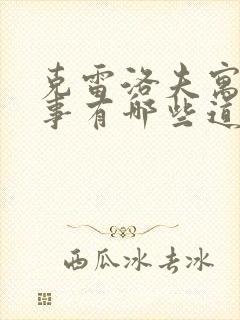 克雷洛夫寓
事有哪些道
西瓜冰去冰